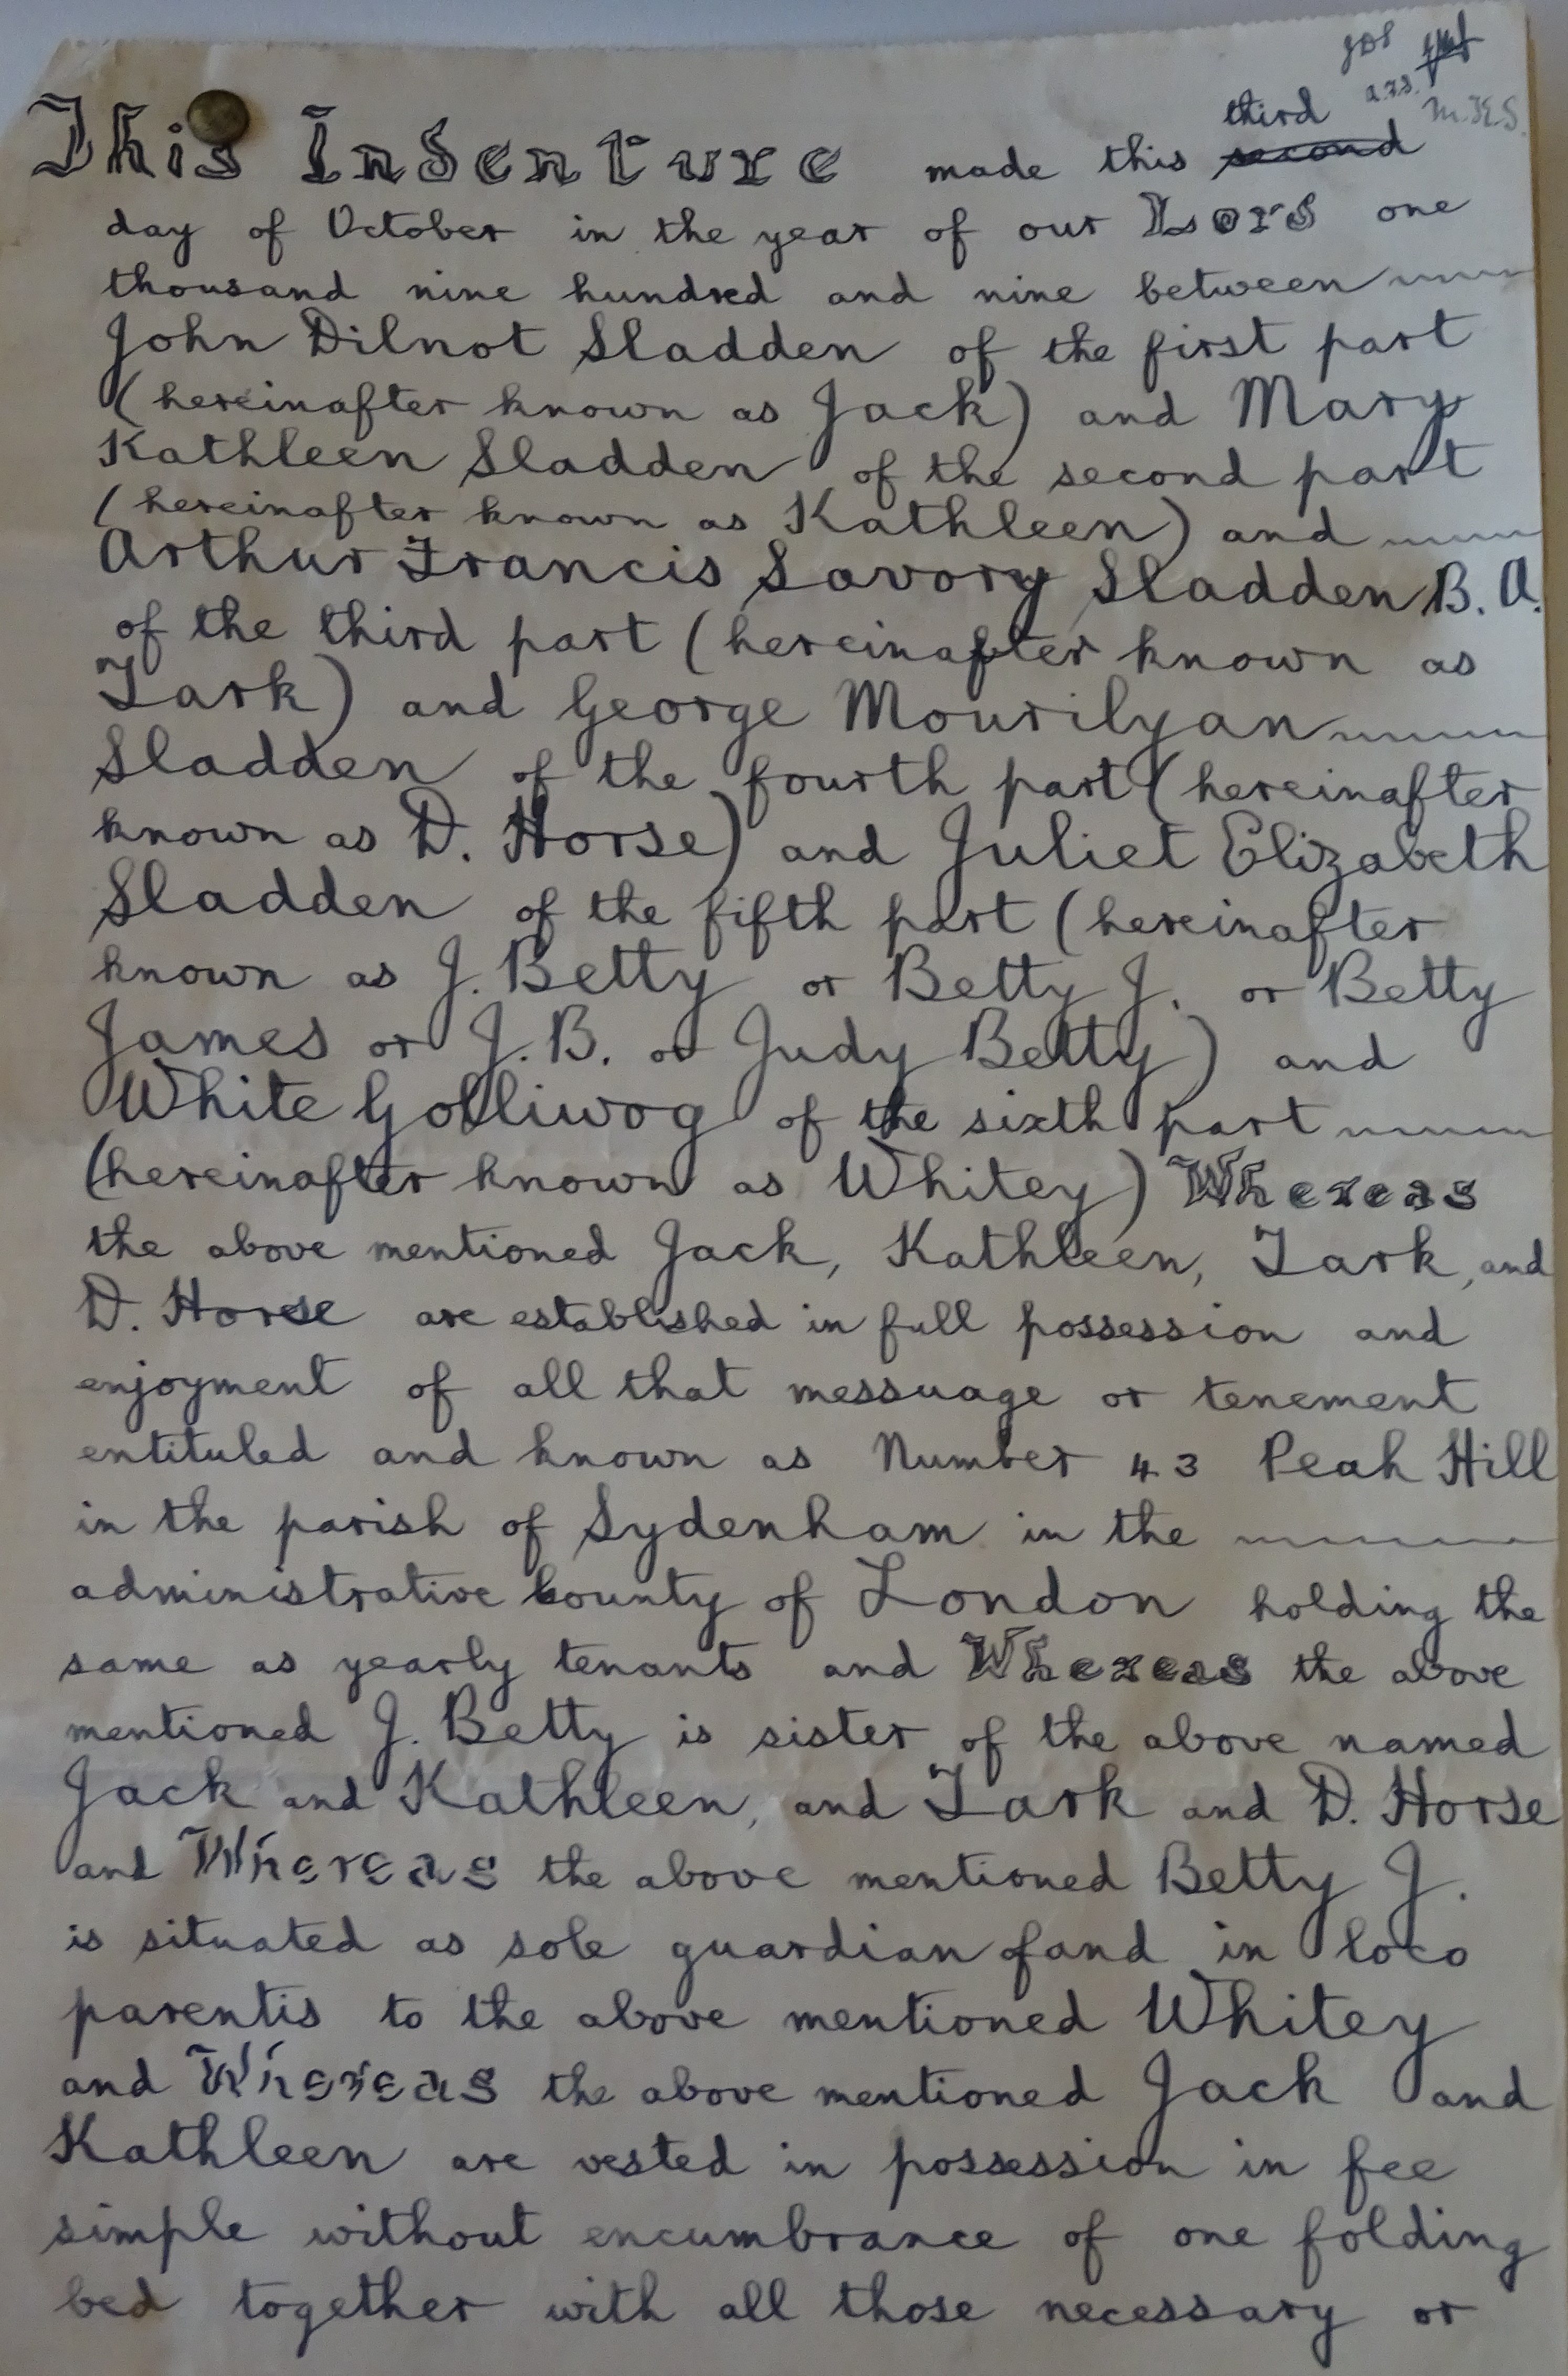 JDS
third a.F.S. M.K.S.
This Indenture made this second
day of October in the year of our Lord one
thousand nine hundred and nine between
John Dilnot Sladden of the first part
(hereinafter known as Jack) and Mary
Kathleen Sladden of the second part
(hereinafter known as Kathleen) and
Arthur Francis Savory Sladden B.A.
of the third part (hereinafter known as
Lark) and George Mourilyan
Sladden of the fourth part (hereinafter
known as D. Horse) and Juliet Elizabeth
Sladden of the fifth part (hereinafter
known as J. Betty or Betty J. or Betty
James or J.B. or Judy Betty) and
White Golliwog of the sixth part
(hereinafter known as Whitey) Whereas
the above mentioned Jack, Kathleen, Lark, and
D. Horse are established in full possession and
enjoyment of all that messuage or tenement
entituled and known as Number 43 Peak Hill
in the parish of Sydenham in the
administrative County of London holding the
same as yearly tenants and Whereas the above
mentioned J. Betty is sister of the above named
Jack and Kathleen, and Lark and D. Horse
and Whereas the above mentioned Betty J.
is situated as sole guardian of and in loco
parentis to the above mentioned Whitey
and Whereas the above mentioned Jack and
Kathleen are vested in possession in fee
simple without encumbrance of one folding
bed together with all those necessary or